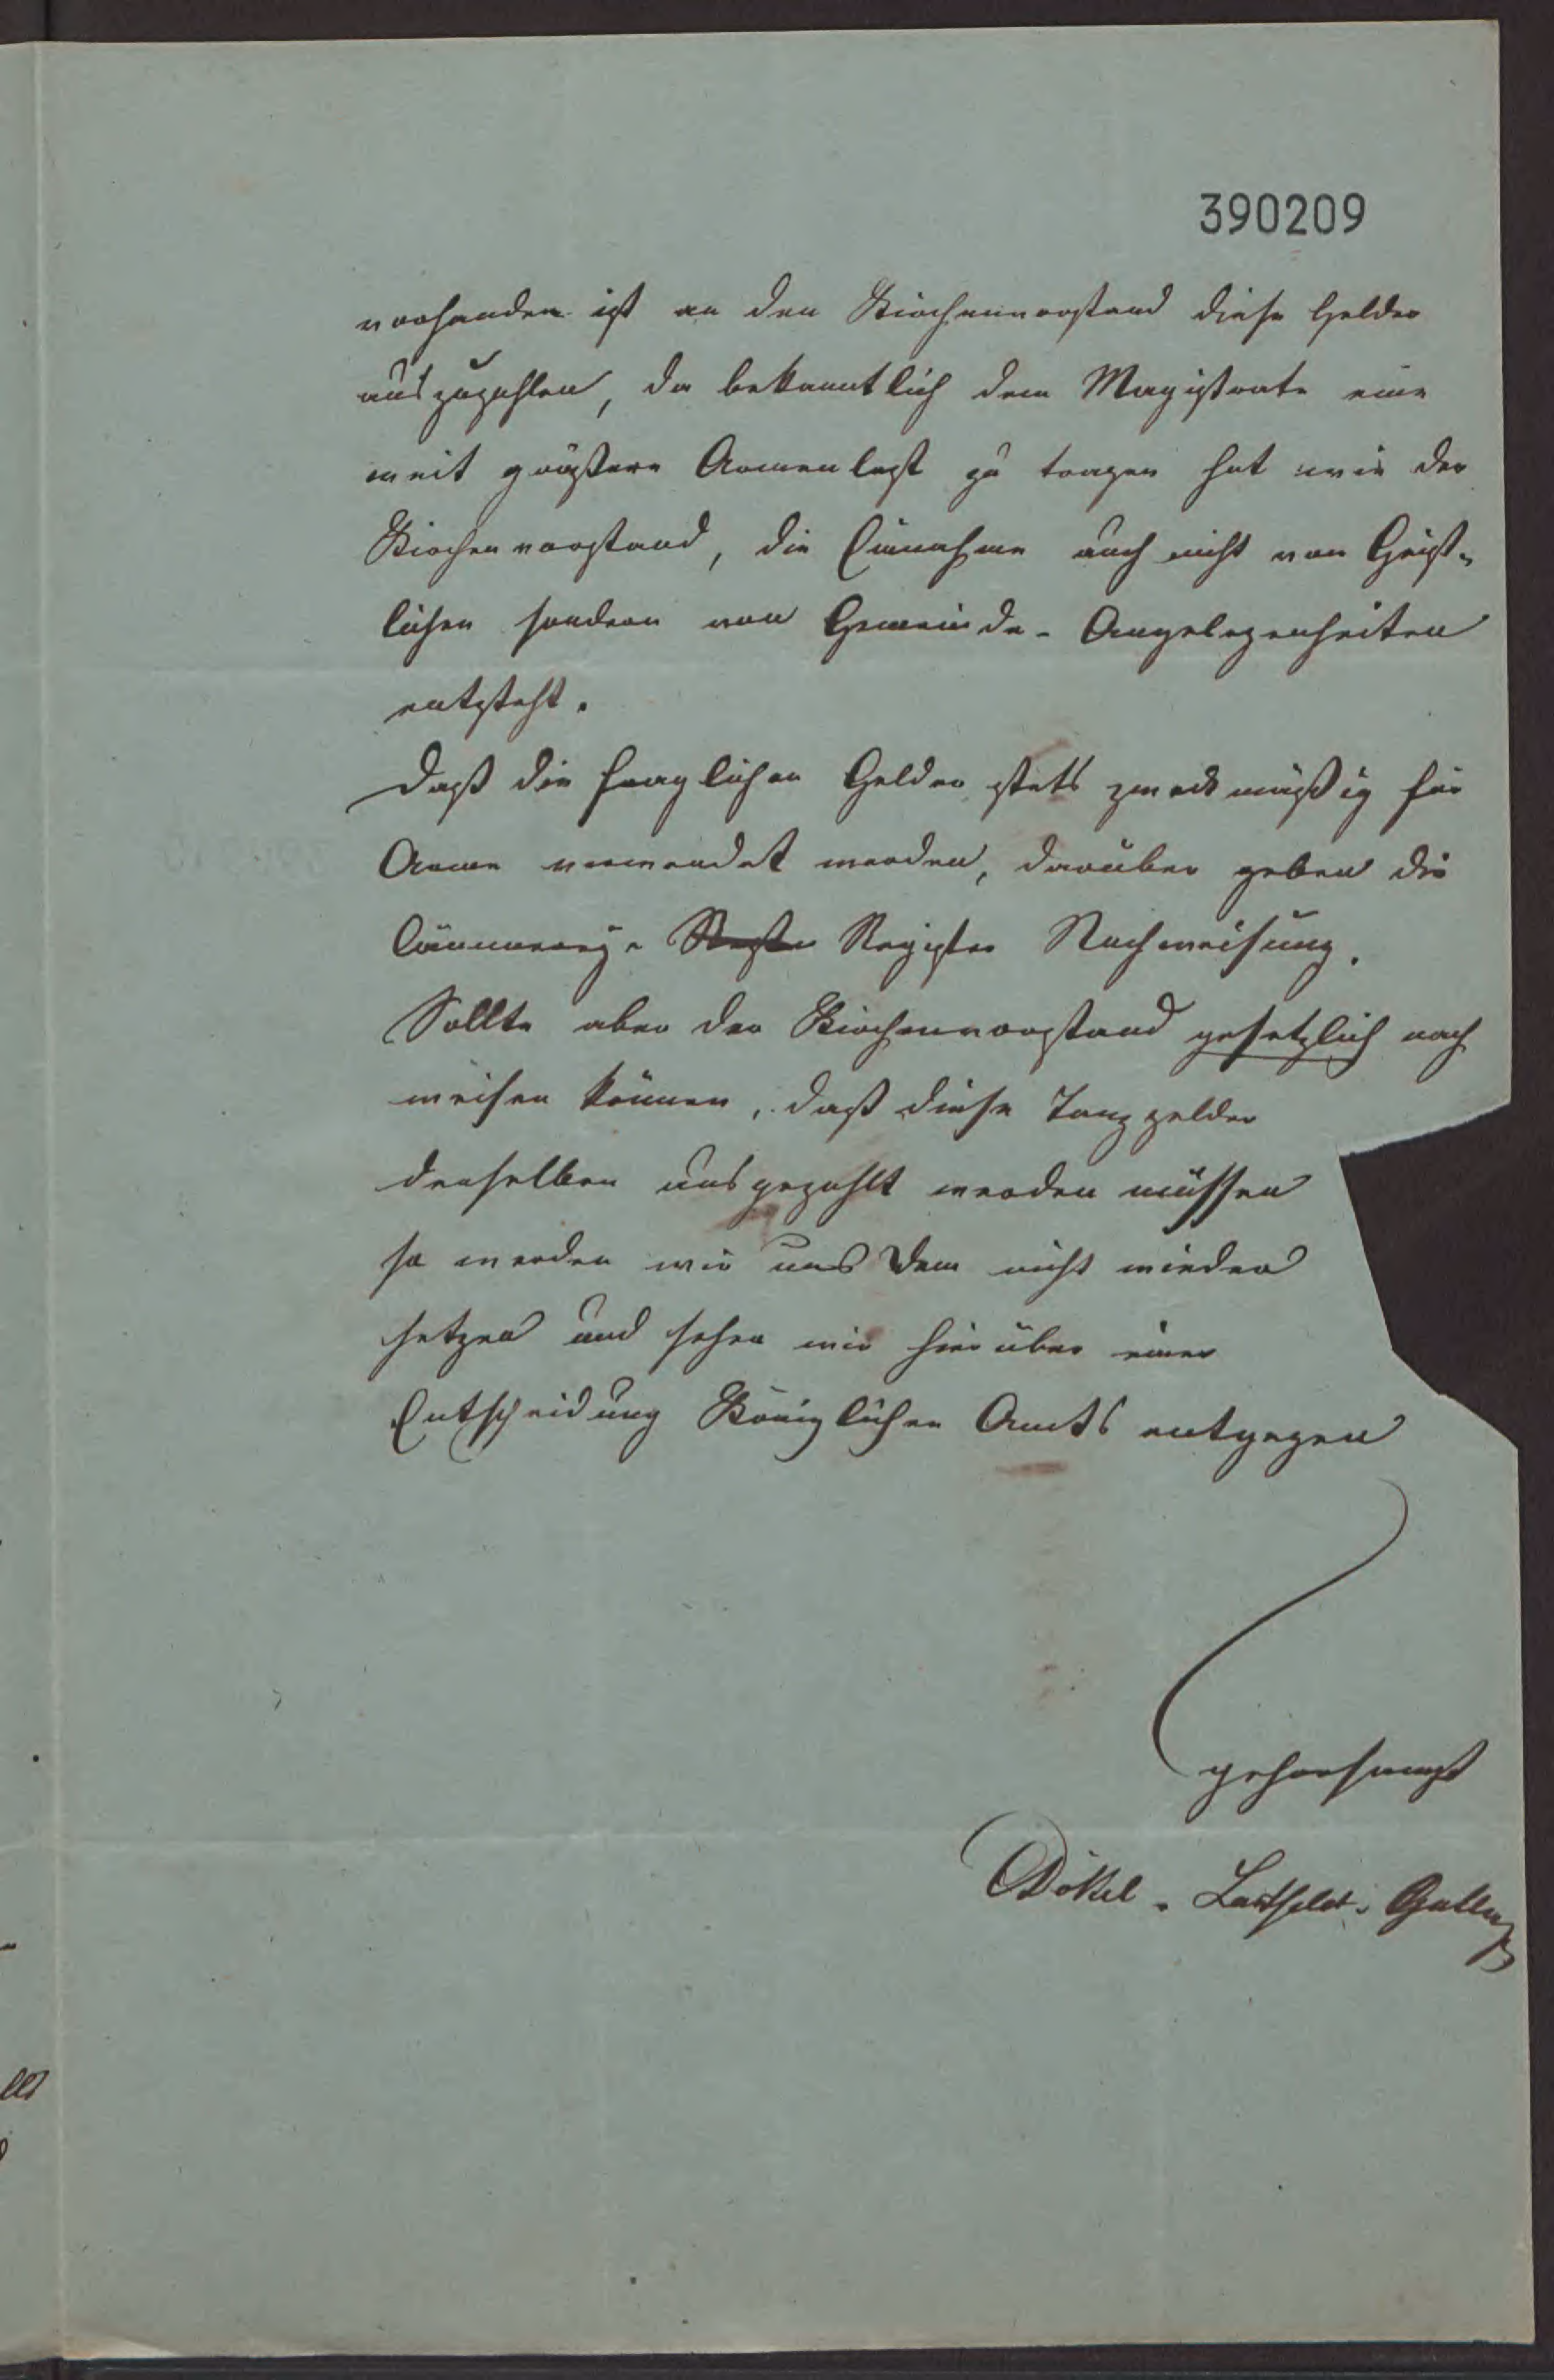 390209
vorhanden ist an den Kirchenvorstand diese Gelder
auszuzahlen, da bekanntlich dem Magistrate eine
weit größere Armenlast zu tragen hat wie der
Kirchenvorstand, die Einnahme auch nicht von Geist-
lichen sondern von Gemeinde-Angelegenheiten
entsteht.
Daß die fraglichen Gelder stets zweckmäßig für
Arme verwendet werden, darüber geben die
Cämmerey- Register Nachweisung.
Sollte aber der Kirchenvorstand gesetzlich nach
weisen können, daß diese Tanzgelder
denselben ausgezahlt werden müssen
so werden wir uns dem nicht wieder
setzen und sehen wir hierüber einer
Entscheidung Königlichen Amts entgegen
gehorsamst
Dökel.